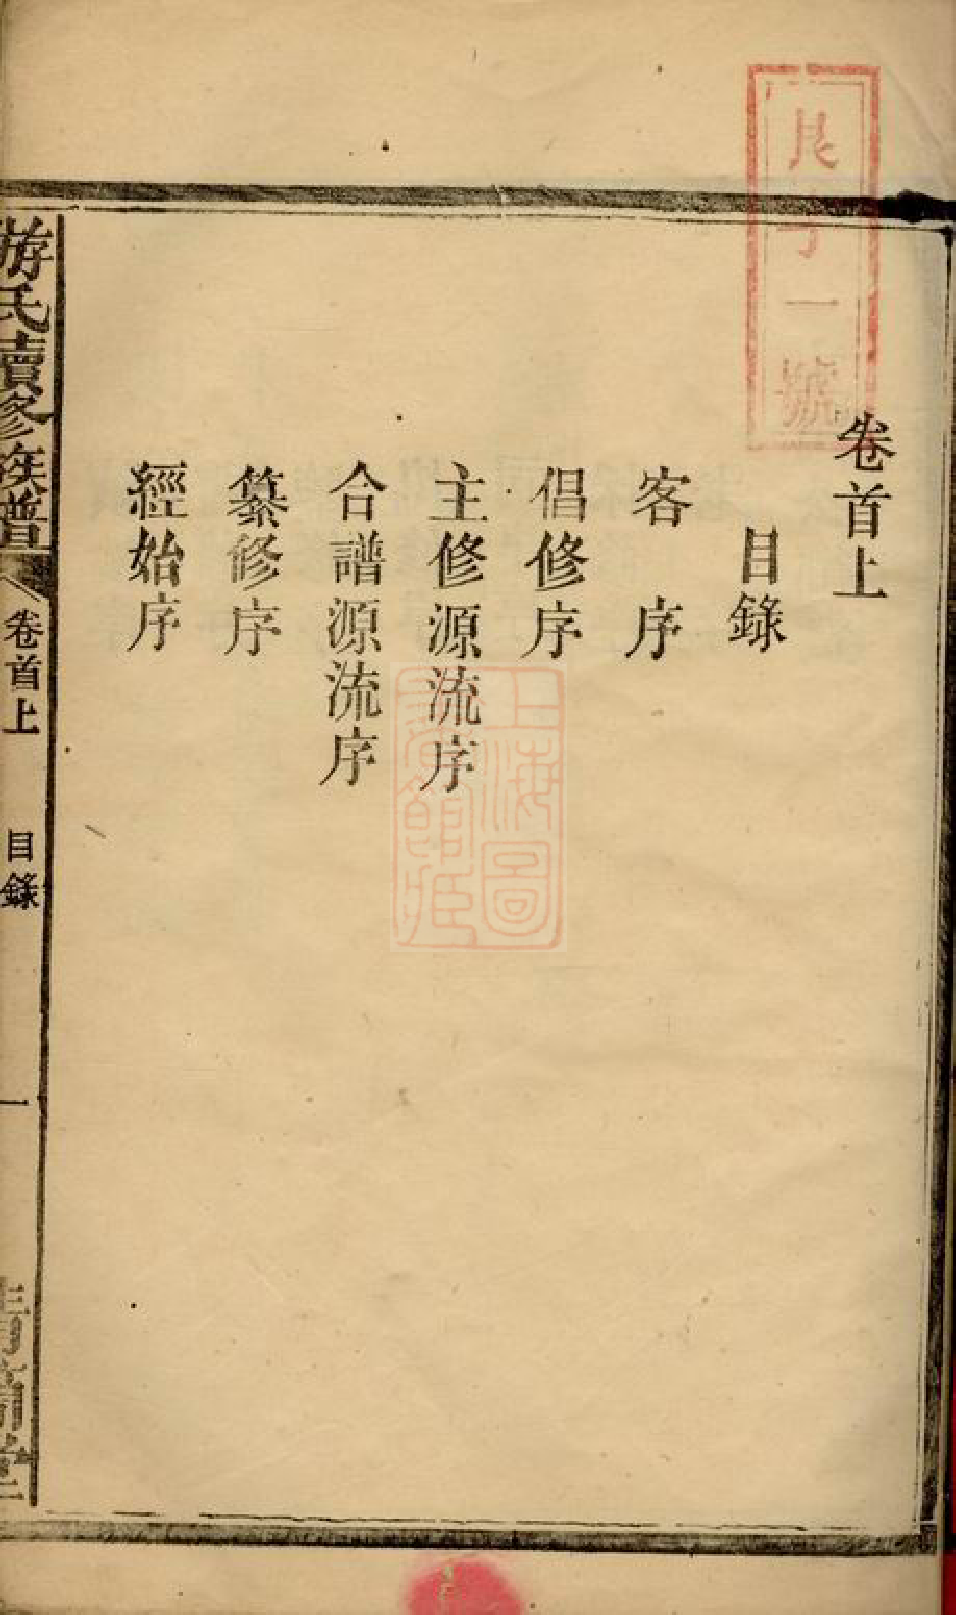 卷首上
目錄
客序
倡修序
主修源流序
合譜源流序
纂修序
經始序
游氏續修族譜
卷首上
目錄
一
艮字一號
上海圖
書館